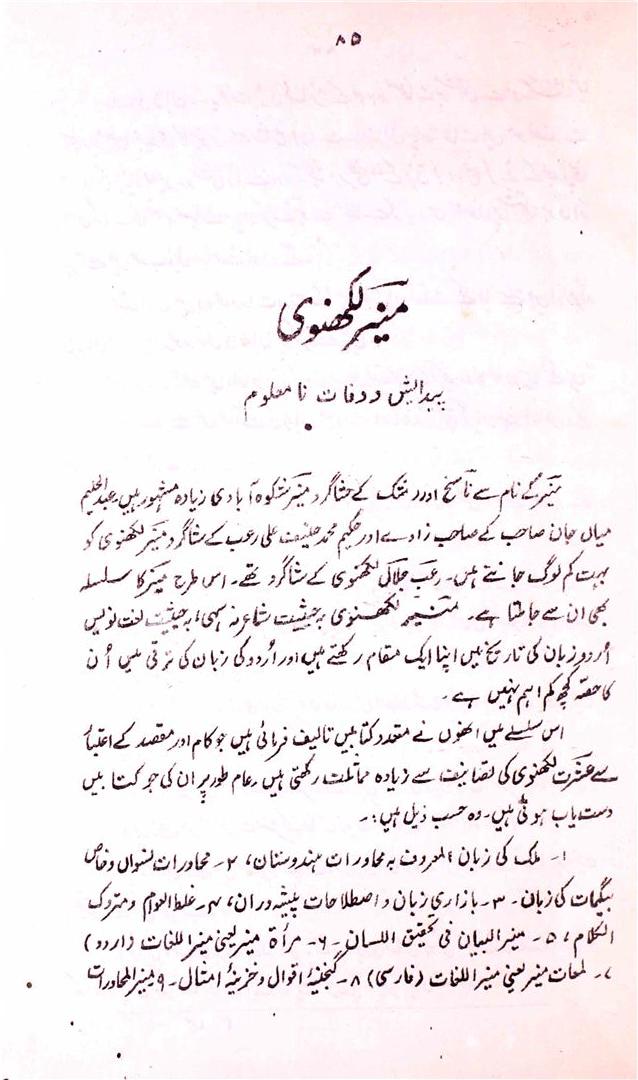 ۸۵
منیر لکھنوی
پیدائش و وفات نا معلوم
منیر کے نام سے ناسخ اور رشک کے شاگرد منیر شکوہ آبادی زیادہ مشہور ہیں۔ عبدالحلیم
میاں جان صاحب کے صاحب زادے اور حکیم محمد حنیف علی رعب کے شاگرد منیر لکھنوی کو
بہت کم لوگ جانتے ہیں۔ رعب جلال لکھنوی کے شاگرد تھے۔ اس طرح منیر کا سلسلہ
بھی ان سے جا ملتا ہے۔ منیر لکھنوی بہ حیثیت شاعر نہ سہی، بہ حیثیت لغت نویس
اُردو زبان کی تاریخ میں اپنا ایک مقام رکھتے ہیں اور اُردو کی زبان کی ترقی میں اُن
کا حصّہ کچھ کم اہم نہیں ہے۔
اس سلسلے میں انھوں نے متعدد کتابیں تالیف فرمائی ہیں جو کام اور مقصد کے اعتبار
سے عشرت لکھنوی کی تصانیف سے زیادہ مماثلت رکھتی ہیں۔ عام طور پر ان کی جو کتابیں
دست یاب ہوتی ہیں۔ وہ حسب ذیل ہیں:۔
۱۔ ملک کی زبان المعروف بہ محاورات ہندوستان، ۲۔ محاورات نسواں و خاص
بیگمات کی زبان۔ ۳۔ بازاری زبان و اصطلاحات پیشہ وران، ۴۔ غلط العوام و متروک
الکلام، ۵۔ منیر البیان فی تحقیق اللسان۔ ۶۔ مرأۃ منیر یعنی منیر اللغات (اردو)
۷۔ لمعات منیر یعنی منیر اللغات (فارسی) ۸۔ گنجینۂ اقوال و خزینۂ امثال۔ ۹۔ منیر المحاورات